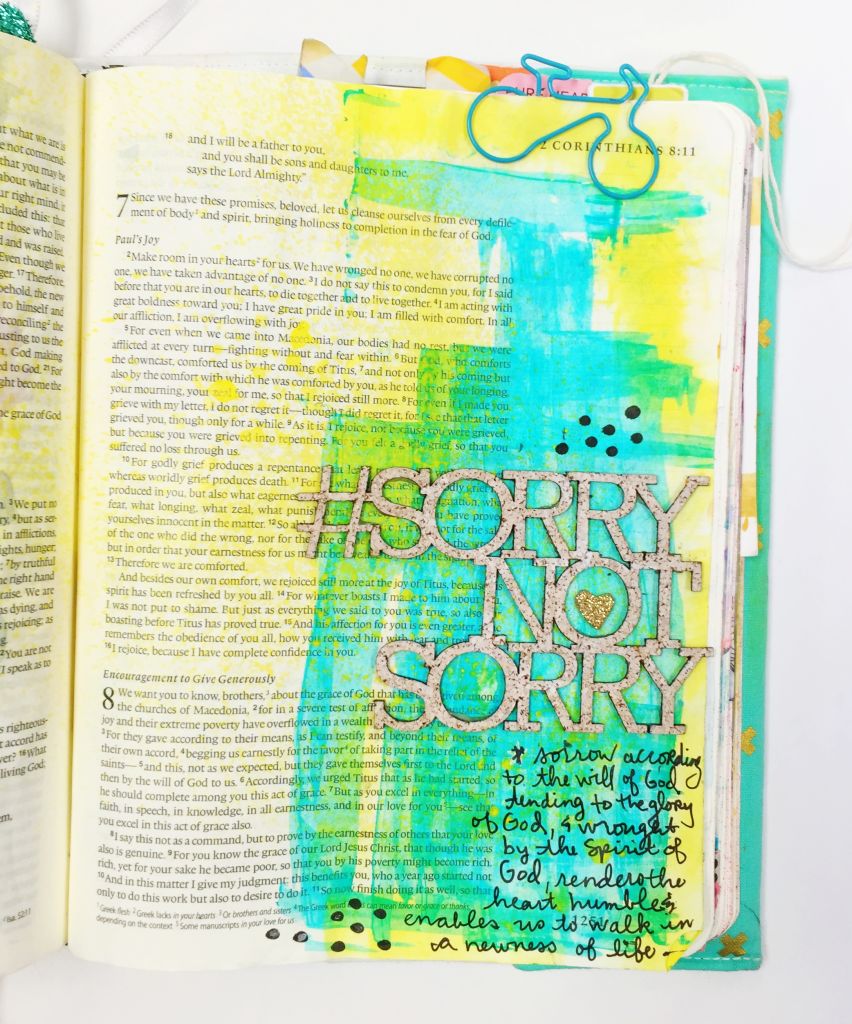 t what we are is
e not commend-
that you may be
about what is in
ur right mind, it
cluded this: that
t those who live
d and was raised.
Even though we
ger. 17 Therefore,
behold, the new
to himself and
reconciling2 the
usting to us the
t, God making
d to God. 21 For
ght become the
he grace of God
3 We put no
ry, 4 but as ser-
in afflictions,
ights, hunger;
7 by truthful
he right hand
raise. We are
as dying, and
rejoicing; as
You are not
I speak as to
righteous-
accord has
ver? 16 What
living God;
em,
Isa. 52:11
2 CORINTHIANS 8:11
18 and I will be a father to you,
and you shall be sons and daughters to me,
says the Lord Almighty.”
7 Since we have these promises, beloved, let us cleanse ourselves from every defile-
ment of body1 and spirit, bringing holiness to completion in the fear of God.
Paul's Joy
2 Make room in your hearts2 for us. We have wronged no one, we have corrupted no
one, we have taken advantage of no one. 3 I do not say this to condemn you, for I said
before that you are in our hearts, to die together and to live together. 4 I am acting with
great boldness toward you; I have great pride in you; I am filled with comfort. In all
our affliction, I am overflowing with joy.
5 For even when we came into Macedonia, our bodies had no rest, but we were
afflicted at every turn—fighting without and fear within. 6 But God, who comforts
the downcast, comforted us by the coming of Titus, 7 and not only by his coming but
also by the comfort with which he was comforted by you, as he told us of your longing,
your mourning, your zeal for me, so that I rejoiced still more. 8 For even if I made you
grieve with my letter, I do not regret it—though I did regret it, for I see that that letter
grieved you, though only for a while. 9 As it is, I rejoice, not because you were grieved,
but because you were grieved into repenting. For you felt a godly grief, so that you
suffered no loss through us.
10 For godly grief produces a repentance that
whereas worldly grief produces death. 11 For godly grief
produced in you, but also what eagerness
fear, what longing, what zeal, what punishment have prove
yourselves innocent in the matter. 12 So not for the sa
of the one who did the wrong, nor for the
but in order that your earnestness for us might be
13 Therefore we are comforted.
And besides our own comfort, we rejoiced still more at the joy of Titus, because
spirit has been refreshed by you all. 14 For whatever boasts I made to him about
I was not put to shame. But just as everything we said to you was true, so also
boasting before Titus has proved true. 15 And his affection for you is even greater, as
remembers the obedience of you all, how you received him with fear and
16 I rejoice, because I have complete confidence in you.
Encouragement to Give Generously
8 We want you to know, brothers,3 about the grace of God that has been given among
the churches of Macedonia, 2 for in a severe test of affliction, their
joy and their extreme poverty have overflowed in a wealth
3 For they gave according to their means, as I can testify, and beyond their means, of
their own accord, 4 begging us earnestly for the favor4 of taking part in the relief of the
saints— 5 and this, not as we expected, but they gave themselves first to the Lord and
then by the will of God to us. 6 Accordingly, we urged Titus that as he had started, so
he should complete among you this act of grace. 7 But as you excel in everything—in
faith, in speech, in knowledge, in all earnestness, and in our love for you5—see that
you excel in this act of grace also.
8 I say this not as a command, but to prove by the earnestness of others that your love
also is genuine. 9 For you know the grace of our Lord Jesus Christ, that though he was
rich, yet for your sake he became poor, so that you by his poverty might become rich.
10 And in this matter I give my judgment: this benefits you, who a year ago started not
only to do this work but also to desire to do it. 11 So now finish doing it as well, so that
1 Greek flesh 2 Greek lacks in your hearts 3 Or brothers and sisters 4 The Greek word can mean favor or grace or thanks,
depending on the context 5 Some manuscripts in your love for us
#SORRY
NOT
SORRY
* sorrow according
to the will of God
tending to the glory
of God, & wrought
by the Spirit of
God, renders the
heart humble &
enables us to walk in
a newness of life.